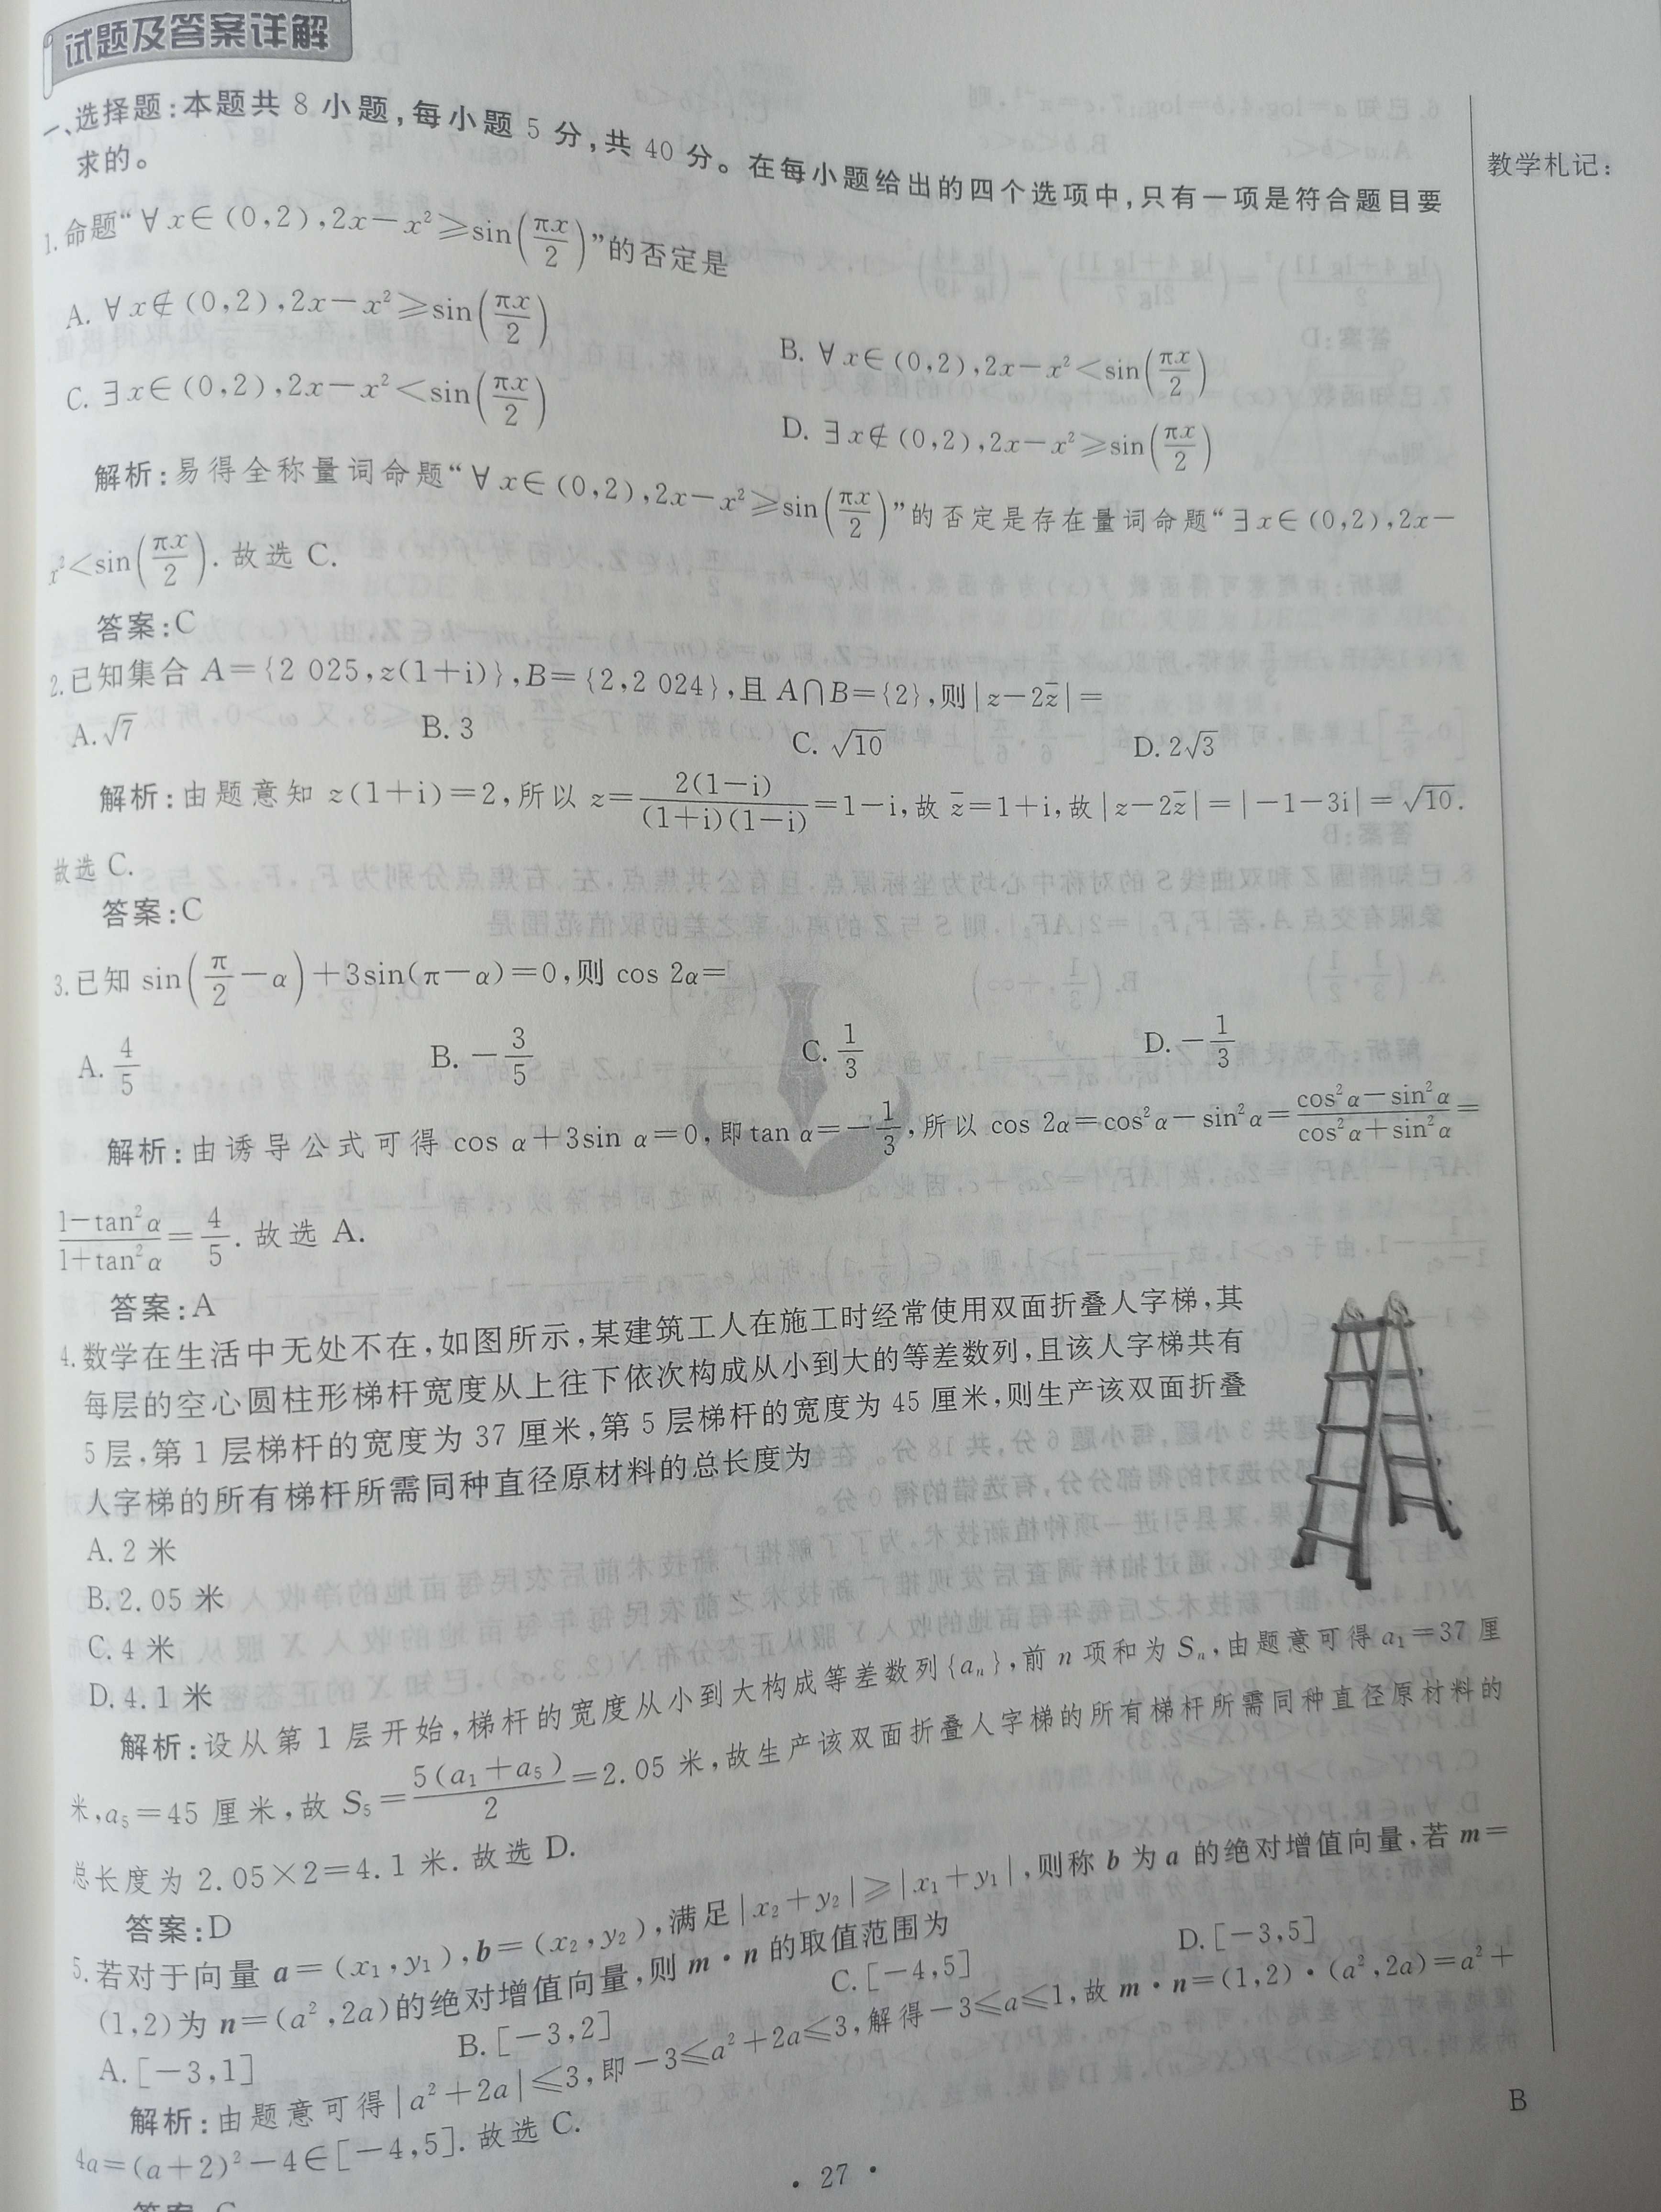 试题及答案详解
教学札记:
一、选择题:本题共 8 小题,每小题 5 分,共 40 分。在每小题给出的四个选项中,只有一项是符合题目要
求的。
1.命题“∀x∈(0,2),2x-x²⩾sin(πx/2)”的否定是
A. ∀x∉(0,2),2x-x²⩾sin(πx/2)
B. ∀x∈(0,2),2x-x²<sin(πx/2)
C. ∃x∈(0,2),2x-x²<sin(πx/2)
D. ∃x∉(0,2),2x-x²⩾sin(πx/2)
解析:易得全称量词命题“∀x∈(0,2),2x-x²⩾sin(πx/2)”的否定是存在量词命题“∃x∈(0,2),2x-
x²<sin(πx/2). 故选 C.
答案:C
2.已知集合 A={2 025,z(1+i)},B={2,2 024},且 A∩B={2},则|z-2z̅|=
A.√7 B. 3 C. √10 D. 2√3
解析:由题意知 z(1+i)=2,所以 z=2(1-i)/((1+i)(1-i))=1-i,故 z̅=1+i,故|z-2z̅|=|-1-3i|=√10.
故选 C.
答案:C
3.已知 sin(π/2-α)+3sin(π-α)=0,则 cos 2α=
A. 4/5 B. -3/5 C. 1/3 D. -1/3
解析:由诱导公式可得 cos α+3sin α=0,即 tan α=-1/3,所以 cos 2α=cos²α-sin²α=(cos²α-sin²α)/(cos²α+sin²α)=
(1-tan²α)/(1+tan²α)=4/5. 故选 A.
答案:A
4.数学在生活中无处不在,如图所示,某建筑工人在施工时经常使用双面折叠人字梯,其
每层的空心圆柱形梯杆宽度从上往下依次构成从小到大的等差数列,且该人字梯共有
5 层,第 1 层梯杆的宽度为 37 厘米,第 5 层梯杆的宽度为 45 厘米,则生产该双面折叠
人字梯的所有梯杆所需同种直径原材料的总长度为
A. 2 米
B. 2.05 米
C. 4 米
D. 4.1 米
解析:设从第 1 层开始,梯杆的宽度从小到大构成等差数列{aₙ},前 n 项和为 Sₙ,由题意可得 a₁=37 厘
米,a₅=45 厘米,故 S₅=5(a₁+a₅)/2=2.05 米,故生产该双面折叠人字梯的所有梯杆所需同种直径原材料的
总长度为 2.05×2=4.1 米. 故选 D.
答案:D
5.若对于向量 a=(x₁,y₁),b=(x₂,y₂),满足|x₂+y₂|⩾|x₁+y₁|,则称 b 为 a 的绝对增值向量,若 m=
(1,2)为 n=(a²,2a)的绝对增值向量,则 m·n 的取值范围为
A.[-3,1] B.[-3,2] C.[-4,5] D.[-3,5]
解析:由题意可得|a²+2a|⩽3,即-3⩽a²+2a⩽3,解得-3⩽a⩽1,故 m·n=(1,2)·(a²,2a)=a²+
4a=(a+2)²-4∈[-4,5]. 故选 C.
答案:C
B
· 27 ·